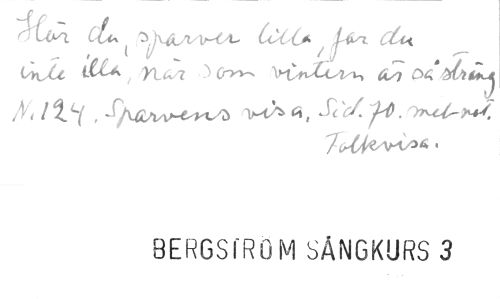 Hör du, sparver lilla, far du
inte illa, när som vintern är så sträng
N. 124. Sparvens visa. Sid. 70. mel-not.
Folkvisa.
BERGSTRÖM SÅNGKURS 3